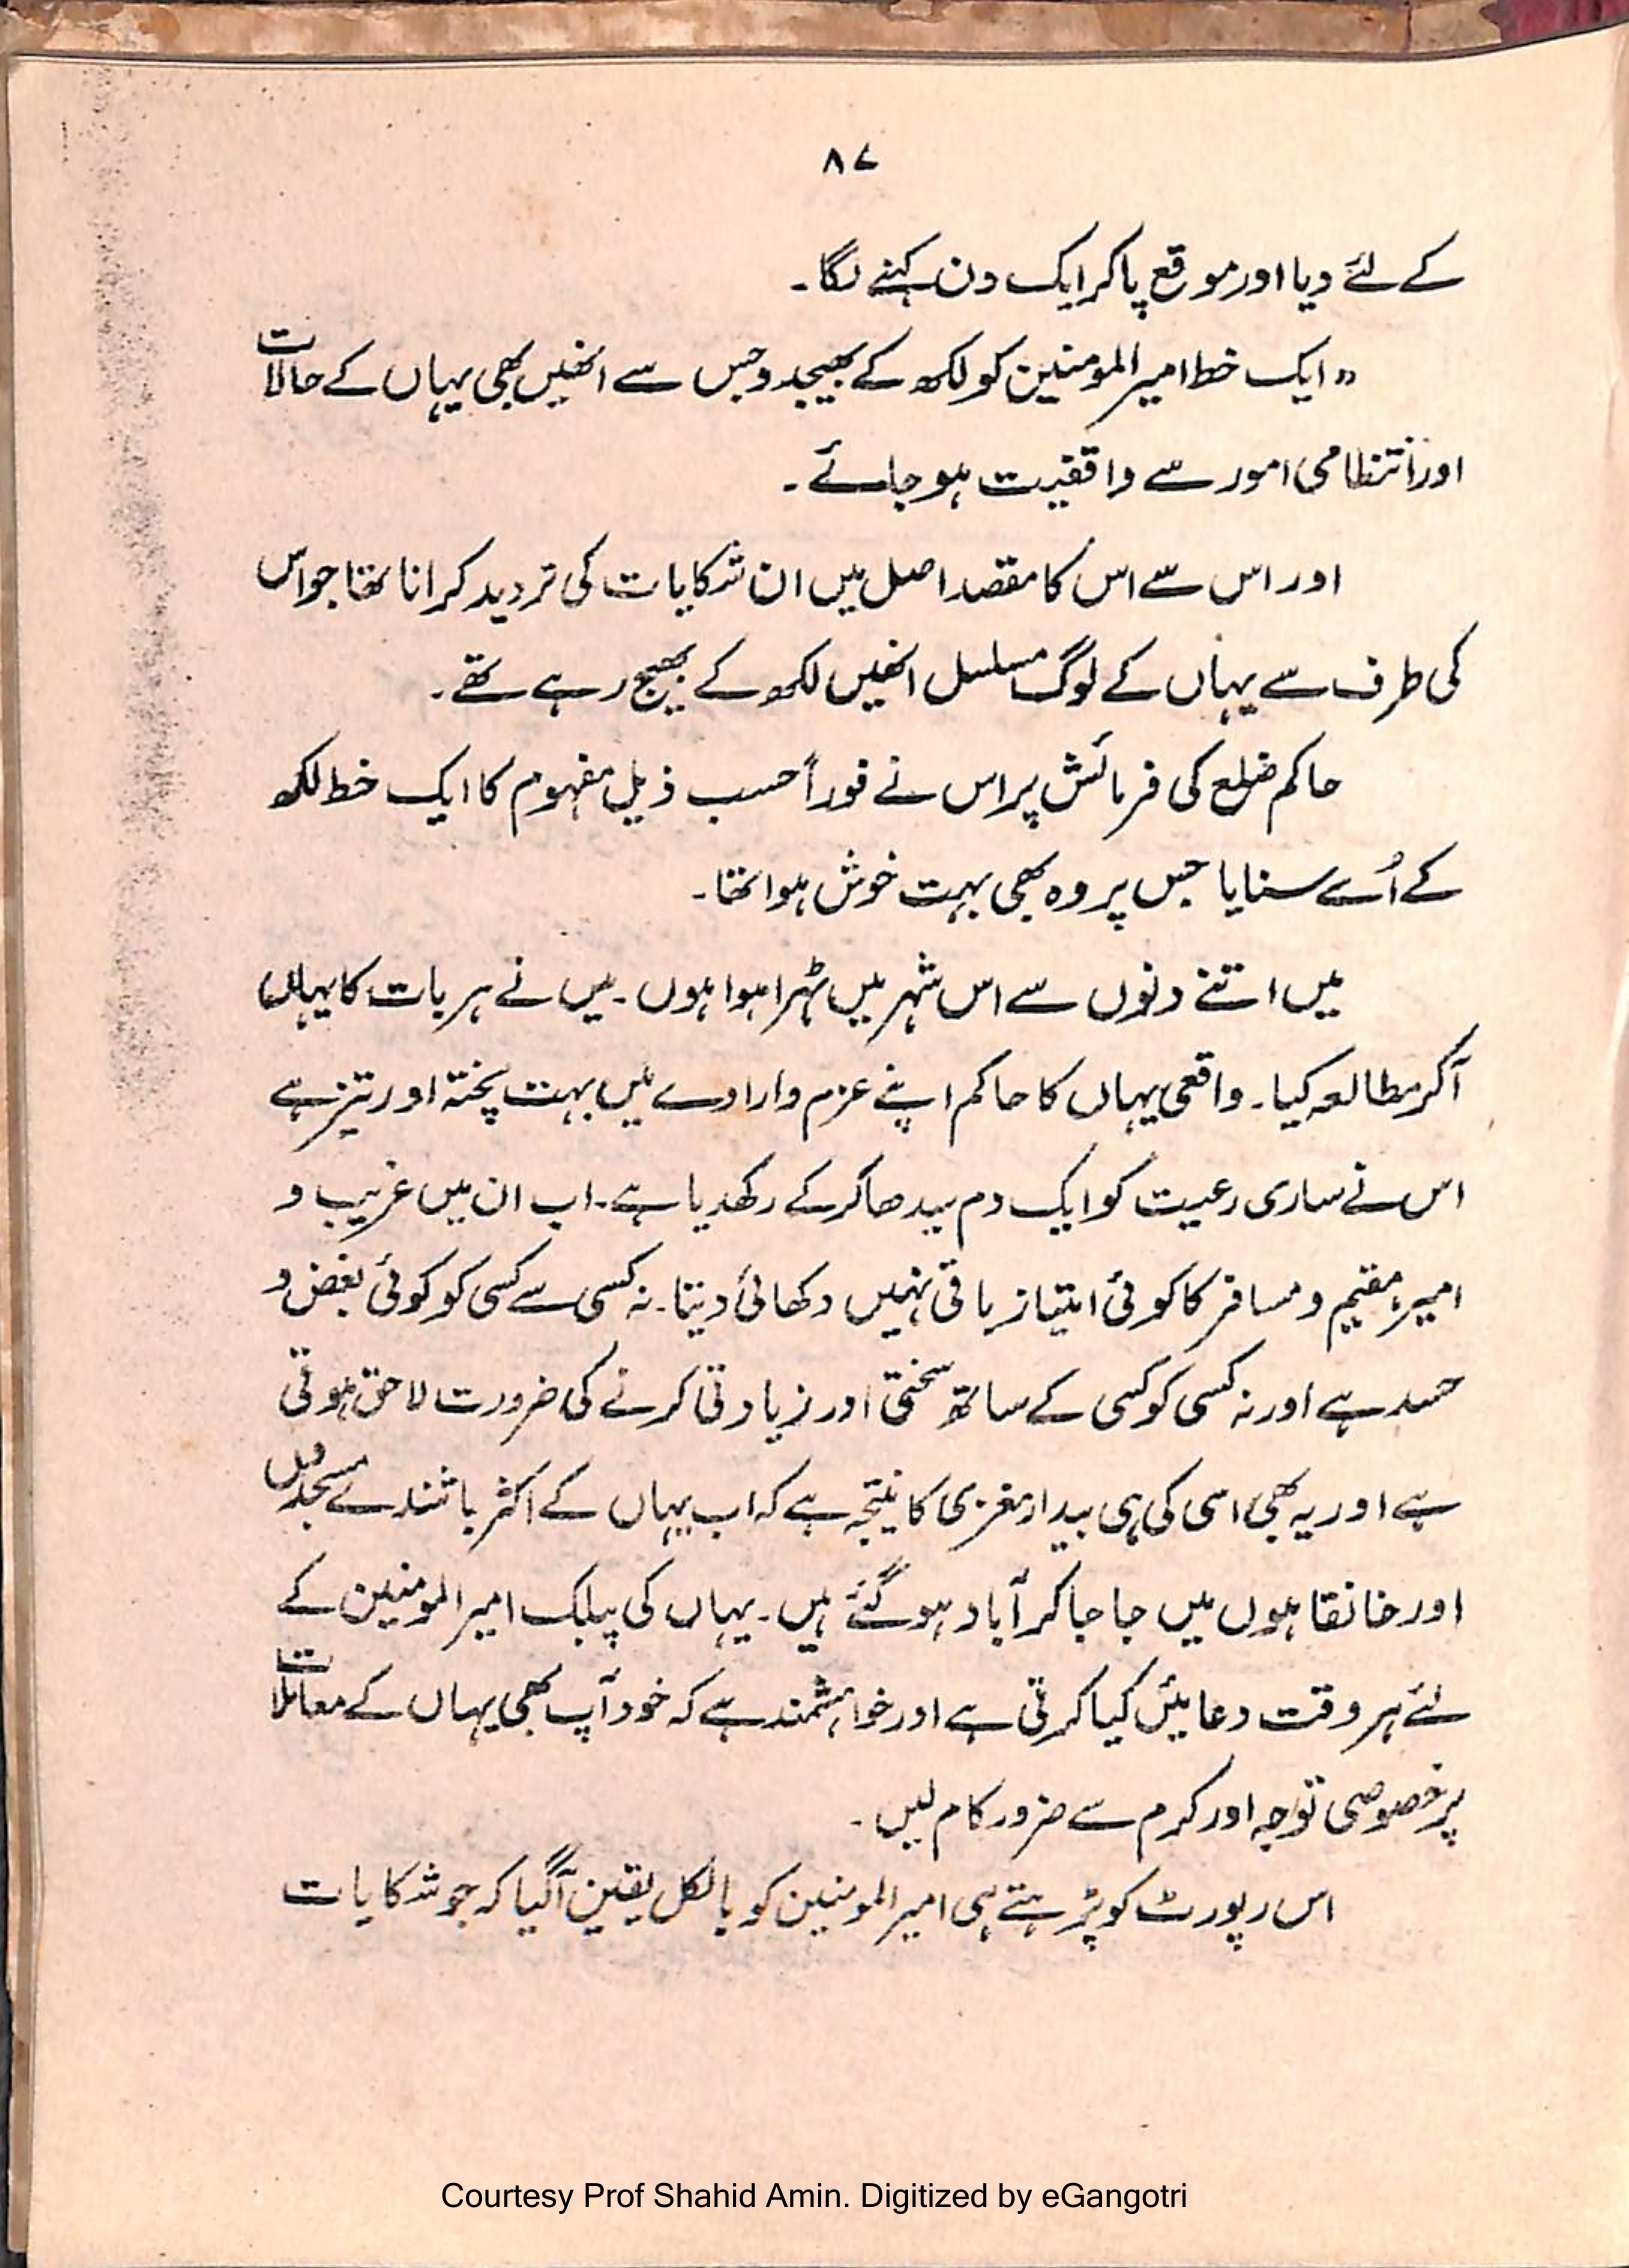 ۸۷
کے لئے دیا اور موقع پاکر ایک دن کہنے لگا۔
"ایک خط امیر المومنین کو لکھ کے بھیجدو جس سے انھیں بھی یہاں کے حالات
اور انتظامی امور سے واقفیت ہو جائے۔
اور اس سے اس کا مقصد اصل میں ان شکایات کی تردید کرانا تھا جو اس
کی طرف سے یہاں کے لوگ مسلسل انھیں لکھ کے بھیج رہے تھے۔
حاکم ضلع کی فرمائش پر اس نے فوراً حسب ذیل مفہوم کا ایک خط لکھ
کے اُسے سنایا جس پر وہ بھی بہت خوش ہوا تھا۔
میں اتنے دنوں سے اس شہر میں ٹہرا ہوا ہوں۔ میں نے ہر بات کا یہاں
آکر مطالعہ کیا۔ واقعی یہاں کا حاکم اپنے عزم وارادے میں بہت پختہ اور تیز ہے
اس نے ساری رعیت کو ایک دم سیدھا کرکے رکھدیا ہے۔ اب ان میں غریب و
امیر، مقیم و مسافر کا کوئی امتیاز باقی نہیں دکھائی دیتا۔ نہ کسی سے کسی کو کوئی بغض و
حسد ہے اور نہ کسی کو کسی کے ساتھ سختی اور زیادتی کرنے کی ضرورت لاحق ہوتی
ہے اور یہ بھی اسی کی ہی بیدار مغزی کا نتیجہ ہے کہ اب یہاں کے اکثر باشندے مسجدوں
اور خانقاہوں میں جا جا کر آباد ہو گئے ہیں۔ یہاں کی پبلک امیر المومنین کے
لئے ہر وقت دعائیں کیا کرتی ہے اور خواہشمند ہے کہ خود آپ بھی یہاں کے معاملات
پر خصوصی توجہ اور کرم سے ضرور کام لیں۔
اس رپورٹ کو پڑہتے ہی امیر المومنین کو بالکل یقین آگیا کہ جو شکایات
Courtesy Prof Shahid Amin. Digitized by eGangotri